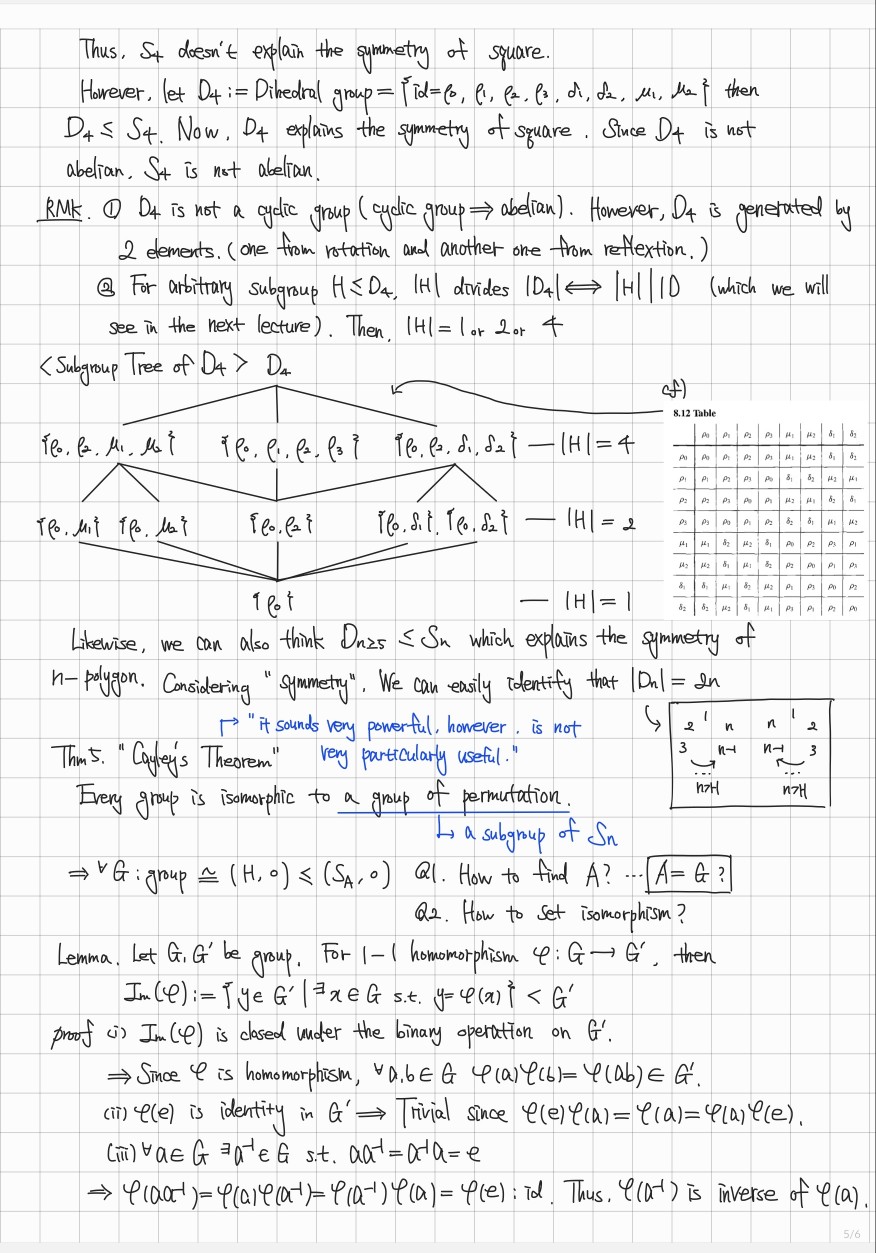 Thus, S₄ doesn't explain the symmetry of square.
However, let D₄ := Dihedral group = {id=ρ₀, ρ₁, ρ₂, ρ₃, δ₁, δ₂, μ₁, μ₂} then
D₄ ≤ S₄. Now, D₄ explains the symmetry of square. Since D₄ is not
abelian, S₄ is not abelian.
RMK. ① D₄ is not a cyclic group (cyclic group ⇒ abelian). However, D₄ is generated by
2 elements. (one from rotation and another one from reflextion.)
② For arbitrary subgroup H ≤ D₄, |H| divides |D₄| ⟺ |H| | |D (which we will
see in the next lecture). Then, |H| = 1 or 2 or 4
<Subgroup Tree of D₄> D₄
cf)
8.12 Table
{ρ₀, ρ₂, μ₁, μ₂} {ρ₀, ρ₁, ρ₂, ρ₃} {ρ₀, ρ₂, δ₁, δ₂} — |H| = 4
{ρ₀, μ₁} {ρ₀, μ₂} {ρ₀, ρ₂} {ρ₀, δ₁}, {ρ₀, δ₂} — |H| = 2
{ρ₀} — |H| = 1
ρ₀ ρ₁ ρ₂ ρ₃ μ₁ μ₂ δ₁ δ₂
ρ₀ ρ₀ ρ₁ ρ₂ ρ₃ μ₁ μ₂ δ₁ δ₂
ρ₁ ρ₁ ρ₂ ρ₃ ρ₀ δ₁ δ₂ μ₂ μ₁
ρ₂ ρ₂ ρ₃ ρ₀ ρ₁ μ₂ μ₁ δ₂ δ₁
ρ₃ ρ₃ ρ₀ ρ₁ ρ₂ δ₂ δ₁ μ₁ μ₂
μ₁ μ₁ δ₂ μ₂ δ₁ ρ₀ ρ₂ ρ₃ ρ₁
μ₂ μ₂ δ₁ μ₁ δ₂ ρ₂ ρ₀ ρ₁ ρ₃
δ₁ δ₁ μ₁ δ₂ μ₂ ρ₁ ρ₃ ρ₀ ρ₂
δ₂ δ₂ μ₂ δ₁ μ₁ ρ₃ ρ₁ ρ₂ ρ₀
Likewise, we can also think Dn≥5 ≤ Sn which explains the symmetry of
n-polygon. Considering "symmetry". We can easily identify that |Dn| = 2n
2 1 n n 1 2
3 n-1 n-1 3
... ...
"it sounds very powerful, however, is not
very particularly useful."
Thm 5. "Cayley's Theorem"
Every group is isomorphic to a group of permutation.
↳ a subgroup of Sn
⇒ ∀G : group ≅ (H, ∘) ≤ (S_A, ∘) Q1. How to find A? ... A = G ?
Q2. How to set isomorphism?
Lemma. Let G, G' be group. For 1-1 homomorphism φ : G → G', then
Im(φ) := {y ∈ G' | ∃x ∈ G s.t. y = φ(x)} < G'
proof (i) Im(φ) is closed under the binary operation on G'.
⇒ Since φ is homomorphism, ∀a,b ∈ G φ(a)φ(b) = φ(ab) ∈ G'.
(ii) φ(e) is identity in G' ⟹ Trivial since φ(e)φ(a) = φ(a) = φ(a)φ(e).
(iii) ∀a ∈ G ∃a⁻¹ ∈ G s.t. aa⁻¹ = a⁻¹a = e
⇒ φ(aa⁻¹) = φ(a)φ(a⁻¹) = φ(a⁻¹)φ(a) = φ(e) : id. Thus, φ(a⁻¹) is inverse of φ(a).
5/6